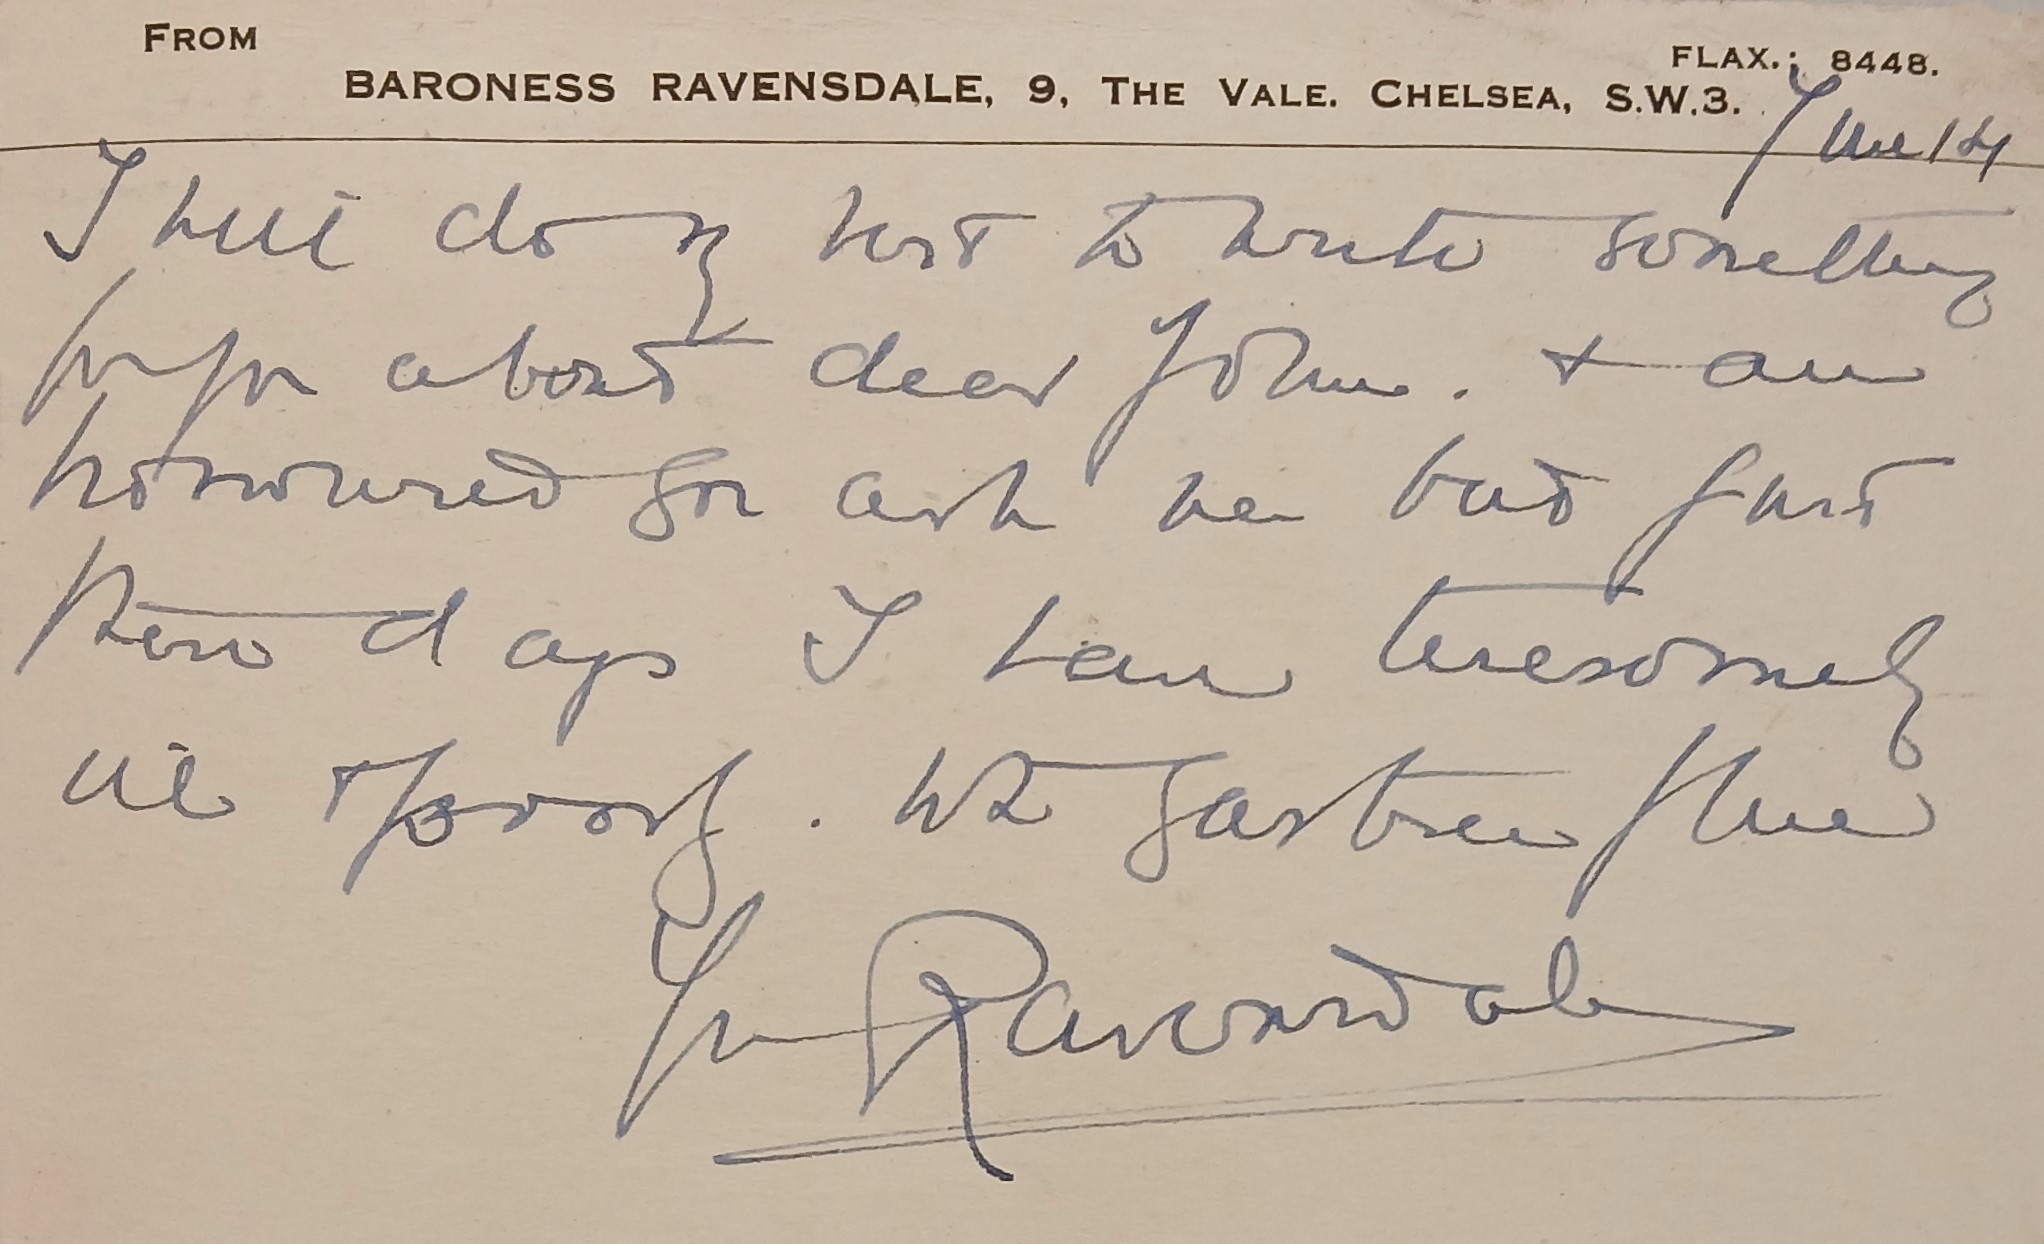 FROM
FLAX.: 8448.
BARONESS RAVENSDALE, 9, THE VALE. CHELSEA, S.W.3.
June 14
I will do my best to write something
for you about dear John. & am
honoured you ask me but just
these days I am tiresomely
ill & poorly. with gastric flue
Yrs Ravensdale